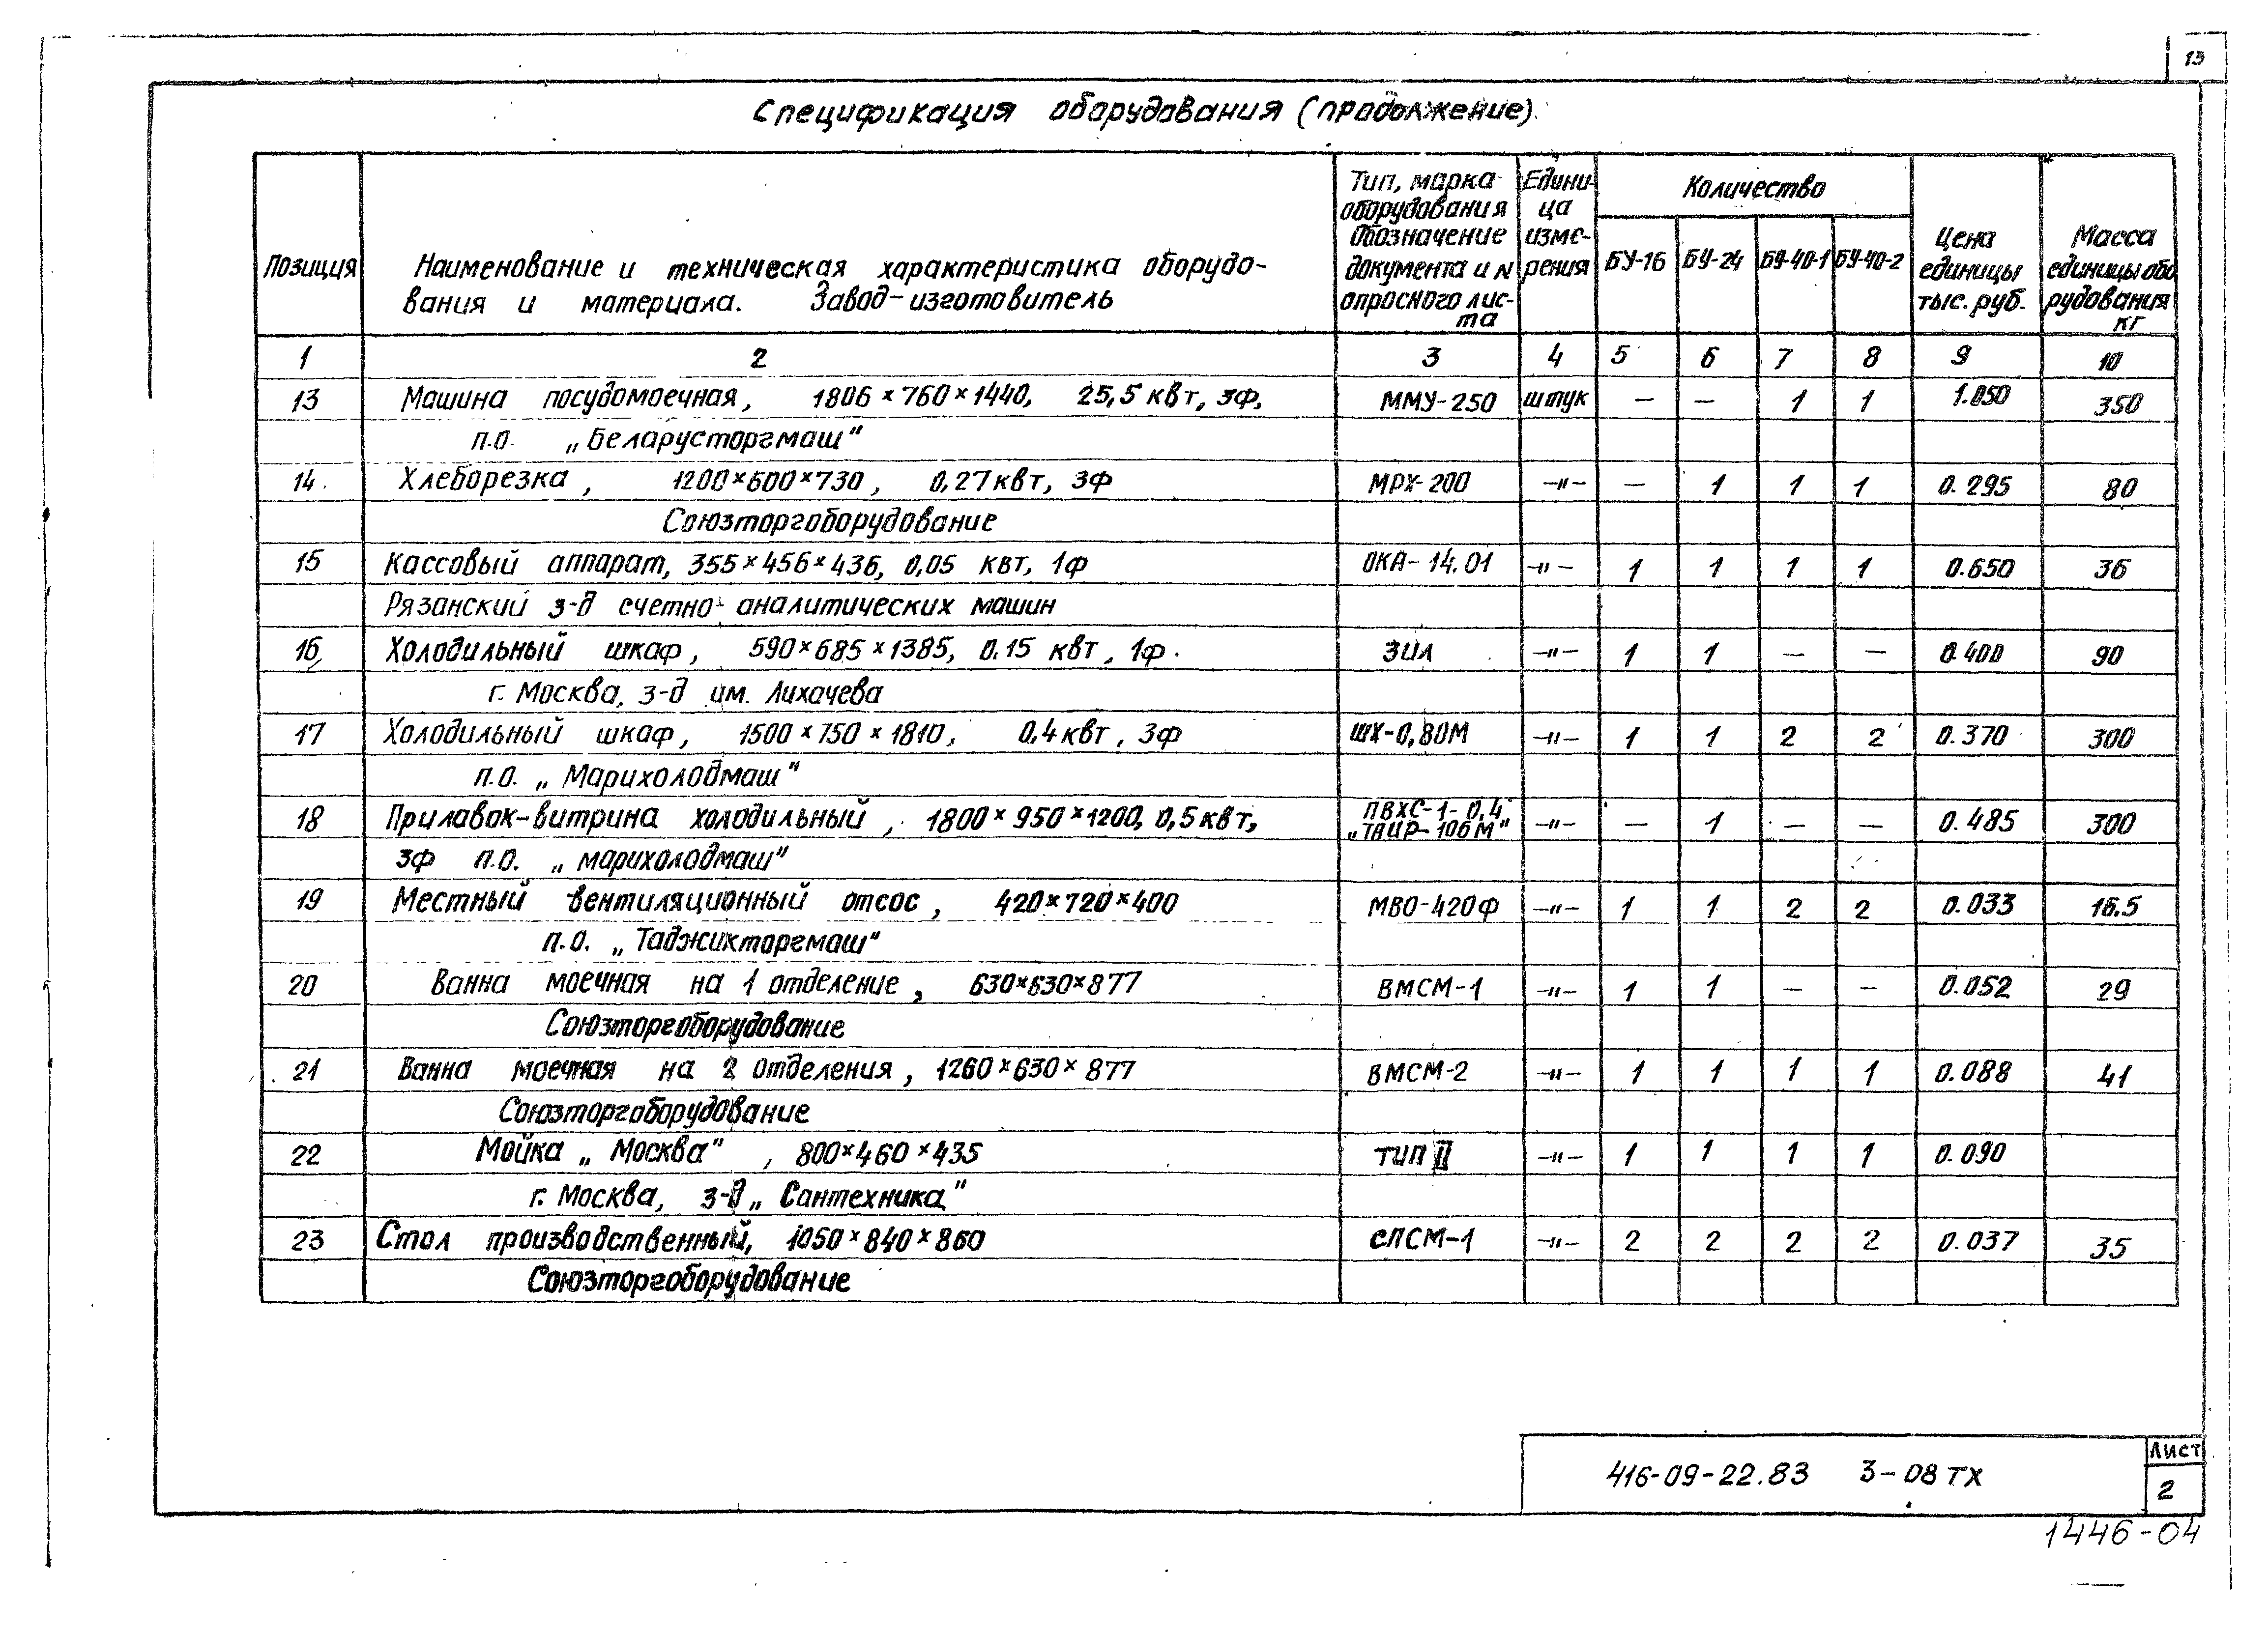 13
Спецификация оборудования (продолжение).
Позиция
Наименование и техническая характеристика оборудо-
вания и материала. Завод-изготовитель
Тип, марка
оборудования
Обозначение
документа и N
опросного лис-
та
Едини-
ца
изме-
рения
Количество
БУ-16 БУ-24 БУ-40-1 БУ-40-2
Цена
единицы
тыс. руб.
Масса
единицы обо
рудования
кг
1 2 3 4 5 6 7 8 9 10
13 Машина посудомоечная, 1806×760×1440, 25,5 квт, 3ф, ММУ-250 штук — — 1 1 1.050 350
п.о. „Беларусторгмаш"
14 Хлеборезка, 1200×600×730, 0,27 квт, 3ф МРХ-200 —"— — 1 1 1 0.295 80
Союзторгоборудование
15 Кассовый аппарат, 355×456×436, 0,05 квт, 1ф ОКА-14.01 —"— 1 1 1 1 0.650 36
Рязанский з-д счетно-аналитических машин
16 Холодильный шкаф, 590×685×1385, 0.15 квт, 1ф. ЗИЛ —"— 1 1 — — 0.400 90
г. Москва, з-д им. Лихачева
17 Холодильный шкаф, 1500×750×1810, 0,4 квт, 3ф ШХ-0,80М —"— 1 1 2 2 0.370 300
п.о. „Марихолодмаш"
18 Прилавок-витрина холодильный, 1800×950×1200, 0,5 квт, ПВХС-1-0,4 „ТАИР-106М" —"— — 1 — — 0.485 300
3ф п.о. „марихолодмаш"
19 Местный вентиляционный отсос, 420×720×400 МВО-420Ф —"— 1 1 2 2 0.033 16.5
п.о. „Таджикторгмаш"
20 Ванна моечная на 1 отделение, 630×630×877 ВМСМ-1 —"— 1 1 — — 0.052 29
Союзторгоборудование
21 Ванна моечная на 2 отделения, 1260×630×877 ВМСМ-2 —"— 1 1 1 1 0.088 41
Союзторгоборудование
22 Мойка „Москва", 800×460×435 ТИП II —"— 1 1 1 1 0.090
г. Москва, з-д „Сантехника"
23 Стол производственный, 1050×840×860 СПСМ-1 —"— 2 2 2 2 0.037 35
Союзторгоборудование
416-09-22.83 3-08 ТХ
Лист
2
1446-04